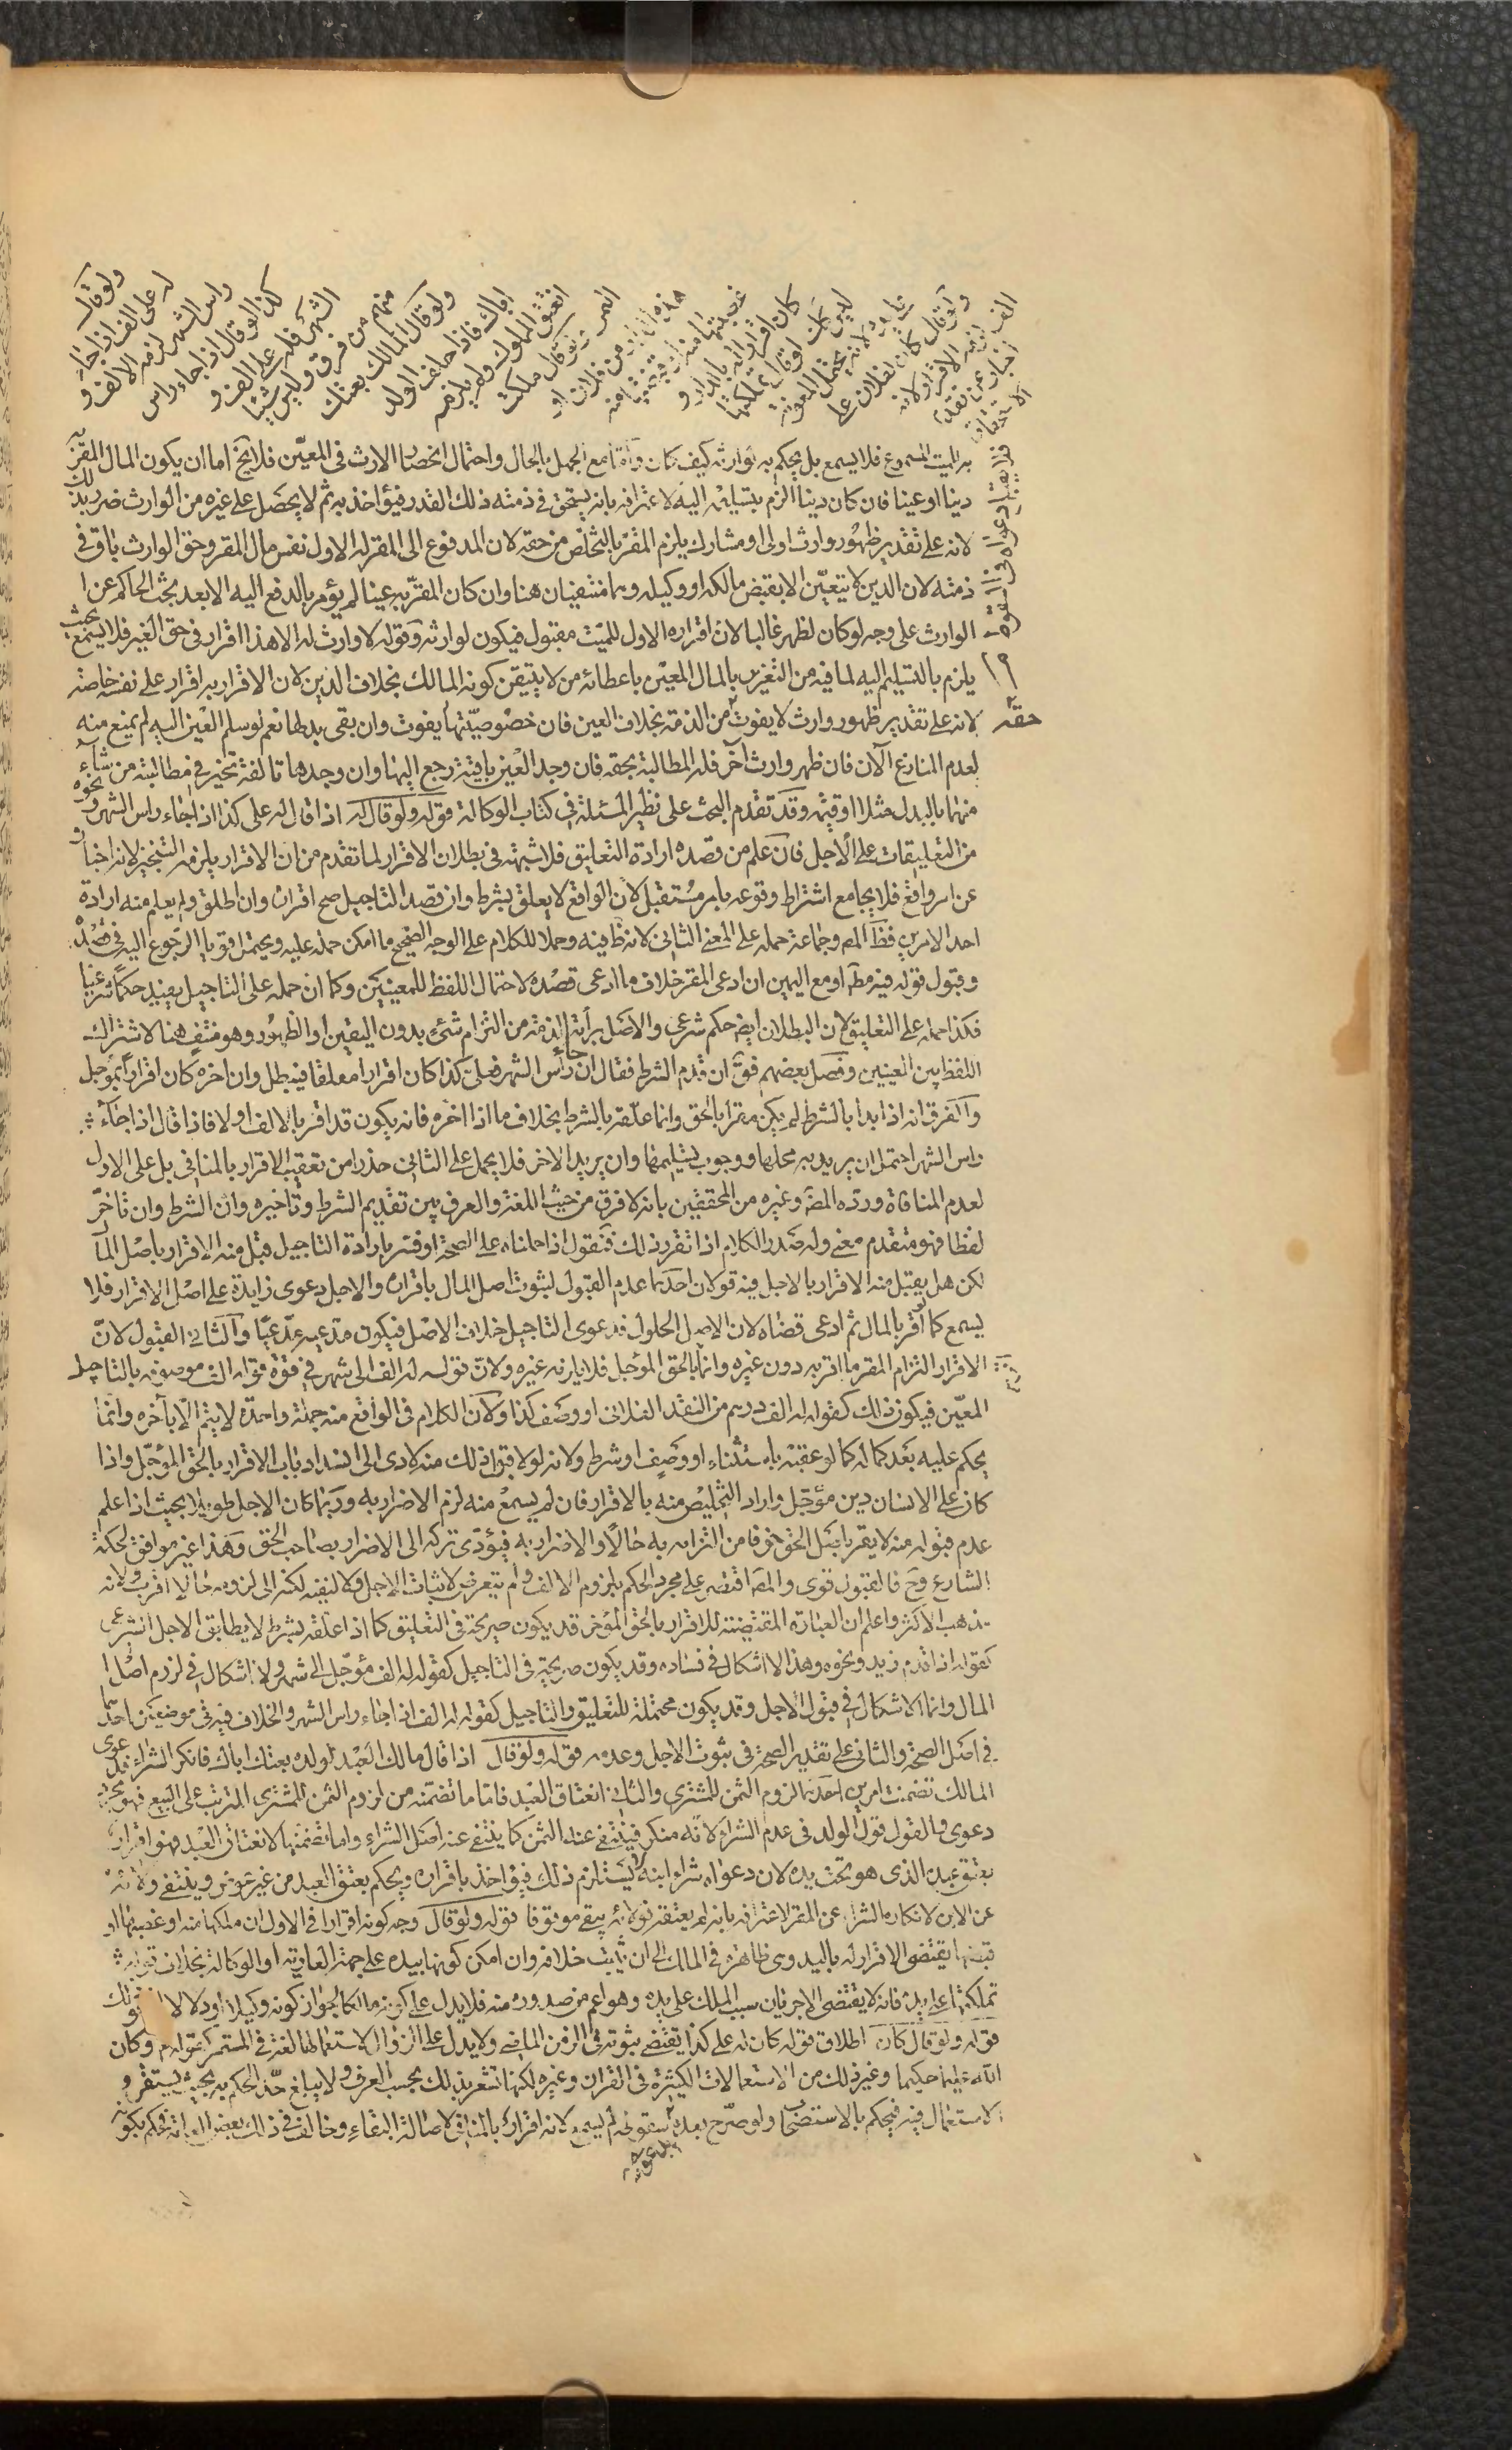 ولو قال
له على الف اذا جاء
راس الشهر لزمه الالف و
كذا لو قال اذا جاء راس
الشهر فله على الف و
منهم من فرق وليس شيئا
ولو قال المالك بعتك
اباك فاذا حلف الولد
انعتق المملوك ولم يلزمه
الثمن ولو قال ملكت
هذه الدار من فلان او
غصبتها منه او قبضتها منه
كان اقرارا له بالدار و
ليس كذلك لو قال تملكتها
على يده لانه يحتمل المعونة
ولو قال كان لفلان على
الف لزمه الاقرار لانه
اخبار عن تقدم
الاستحقاق
فلا يقبل دعواه في السقوط
به للميت المسموع فلا يسمع بل يحكم به لوارثه كيف كان وأما مع الجهل بالحال واحتمال انحصار الارث في المعيّن فلا يخ اما ان يكون المال المقرّ به
دينا او عينا فان كان دينا الزم بتسليمه اليه لاعترافه بانه يستحق في ذمته ذلك القدر فيؤاخذ به ثم لا يحصل على غيره من الوارث ضرر بذلك
لانه على تقدير ظهور وارث اولى او مشارك يلزم المقرّ بالتخلص من حقه لان المدفوع الى المقر له الاول نفس مال المقر وحق الوارث باق في
ذمته لان الدين لا يتعيّن الا بقبض مالكه او وكيله وهما منتفيان هنا وان كان المقرّ به عينا لم يؤمر بالدفع اليه الا بعد بحث الحاكم عن
الوارث على وجه لو كان لظهر غالبا لان اقراره الاول للميت مقبول فيكون لوارثه وقوله لا وارث له الا هذا اقرار في حق الغير فلا يسمع بحيث
يلزم بالتسليم اليه لما فيه من التغرير بالمال المعيّن باعطائه من لا يتيقن كونه المالك بخلاف الدين لان الاقرار به اقرار على نفسه خاصة
لانه على تقدير ظهور وارث لا يفوت حقه من الذمة بخلاف العين فان خصوصيّتها يفوت وان بقى بدلها نعم لو سلم العين اليه لم يمنع منه
لعدم المنازع الآن فان ظهر وارث آخر فله المطالبة بحقه فان وجد العين باقية رجع اليها وان وجدها تالفة تخير في مطالبة من شاء
منهما بالبدل مثلا او قيمة وقد تقدم البحث على نظير المسئلة في كتاب الوكالة قوله ولو قال له اذا قال له على كذا اذا جاء راس الشهر ونحوه
من التعليقات على الاجل فان علم من قصده ارادة التعليق فلا شبهة في بطلان الاقرار لما تقدم من ان الاقرار يلزمه التنجيز لانه اخبار
عن امر واقع فلا يجامع اشتراط وقوعه بامر مستقبل لان الواقع لا يعلق بشرط وان قصد التاجيل صح اقراره وان اطلق ولم يعلم منه ارادة
احد الامرين فظ المص وجماعة حمله على المعنى الثاني لانه ظ فيه وحملا للكلام على الوجه الصحيح ما امكن حمله عليه ويحتمل قويا الرجوع اليه في قصده
وقبول قوله فيه مط او مع اليمين ان ادعى المقر خلاف ما ادعى قصده لاحتمال اللفظ للمعنيين وكما ان حمله على التاجيل يفيد حكما شرعيا
فكذا حمله على التعليق لان البطلان ايض حكم شرعى والاصل براءة الذمة من التزام شئ بدون اليقين او الظهور وهو منتف هنا لاشتراك
اللفظ بين المعنيين وفصل بعضهم فقال ان قدم الشرط فقال ان جاء رأس الشهر فعلى كذا كان اقرارا معلقا فيبطل وان اخره كان اقرارا بمؤجل
والفرق انه اذا بدا بالشرط لم يكن مقرا بالحق وانما علّقه بالشرط بخلاف ما اذا اخره فانه يكون قد اقر بالالف اولا فاذا قال اذا جاء
راس الشهر احتمل ان يريد به محلها ووجوب تسليمها وان يريد الاخر فلا يحمل على الثاني حذرا من تعقيب الاقرار بالمنافي بل على الاول
لعدم المنافاة وردّه المصّ وغيره من المحققين بانه لا فرق من حيث اللغة والعرف بين تقديم الشرط وتاخيره وان الشرط وان تاخّر
لفظا فهو متقدم معنى وله صدر الكلام اذا تقرر ذلك فنقول اذا حملناه على الصحة او فسر بارادة التاجيل قبل منه الاقرار باصل المال
لكن هل يقبل منه الاقرار بالاجل فيه قولان احدهما عدم القبول لثبوت اصل المال باقراره والاجل دعوى زايدة على اصل الاقرار فلا
يسمع كما لو اقر بالمال ثم ادعى قضاه لان الاصل الحلول فدعوى التاجيل خلاف الاصل فيكون مدعيه مدّعيا والثاني القبول لانّ
الاقرار التزام المقر ما اقر به دون غيره وانما اقر بالحق المؤجل فلا يلزمه غيره ولانّ قوله له الف الى شهر في قوة قوله الف موصوفه بالتاجيل
المعيّن فيكون ذلك كقوله له الف درهم من النقد الفلاني او وصف كذا ولان الكلام في الواقع منه جملة واحدة لا يتم الا بآخره وانما
يحكم عليه بعد كماله كما لو عقبه باستثناء او وصف او شرط ولانه لولا قبول ذلك منه لادى الى انسداد باب الاقرار بالحق المؤجّل واذا
كان على الانسان دين مؤجل واراد التخليص منه بالاقرار فان لم يسمع منه لزم الاضرار به وربما كان الاجل طويلا بحيث اذا علم
عدم قبوله منه لا يقر باصل الحق خوفا من التزامه به حالّا والاضرار به فيؤدى تركه الى الاضرار بصاحب الحق وهذا غير موافق لحكمة
الشارع وح فالقبول قوى والمص اقتصر على مجرد الحكم بلزوم الالف ولم يتعرض لاثبات الاجل ولا لنفيه لكنه الى لزومه حالا اقرب ولانه
مذهب الاكثر واعلم ان العبارة المقتضية للاقرار بالحق المؤخر قد يكون صريحة في التعليق كما اذا علقه بشرط لا يطابق الاجل الشرعى
كقوله اذا قدم زيد ونحوه وهذا لا اشكال في فساده وقد يكون صريحة في التاجيل كقوله له الف مؤجّل الى شهر ولا اشكال في لزوم اصل
المال وانما الاشكال في قبول الاجل وقد يكون محتملة للتعليق والتاجيل كقوله له الف اذا جاء راس الشهر والخلاف فيه في موضعين احدهما
في اصل الصحة والثاني على تقدير الصحة في ثبوت الاجل وعدمه قوله ولو قال اذا قال مالك العبد لولده بعتك اباك فانكر الشراء فدعوى
المالك تضمنت امرين احدهما لزوم الثمن للمشترى والثاني انعتاق العبد فاما ما تضمّنه من لزوم الثمن للمشترى المترتب على البيع فهو مجرد
دعوى والقول قول الولد في عدم الشراء لانه منكر فينتفى عنه الثمن كما ينتفى عنه اصل الشراء واما تضمنها لانعتاق العبد فهو اقرار
بعتق عبده الذى هو تحت يده لان دعواه شراء ابنه له يستلزم ذلك فيؤاخذ باقراره ويحكم بعتق العبد من غير عوض وينتفى ولائه
عن الابن لانكاره الشراء وعن المقر لاعترافه بانه لم يعتقه فولائه يبقى موقوفا قوله ولو قال وجه كونه اقرارا في الاول ان ملكها منه او غصبها او
قبضها يقتضى الاقرار له باليد وهى ظاهرة في الملك الى ان يثبت خلافه وان امكن كونها بيده على جهة العارية او الوكالة بخلاف قوله
تملكتها على يده فانه لا يقتضى الا جريان سبب الملك على يده وهو اعم من صدوره منه فلا يدل على كونه مالكا لجواز كونه وكيلا او دلالا
قوله ولو قال كان اطلاق قوله كان له على كذا يقتضى ثبوته في الزمن الماضى ولا يدل على الزوال لاستعمالها لغة في المستمر كقوله تم وكان
الله عليما حكيما وغير ذلك من الاستعمالات الكثيرة في القران وغيره لكنها تشعر بذلك بحسب العرف ولا يبلغ حّد الحكم به بحيث يستقر و
الاستعمال فيه فيحكم بالاستصحاب ولو صرّح بعده بسقوطه لم يسمع لانه اقرار بالمنافي لاصالة البقاء وخالف في ذلك بعض العامة فحكم بكونه